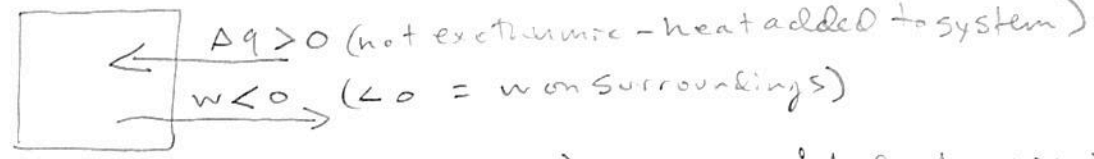 Δq > 0 (not exothermic - heat added to system)
w < 0 (< 0 = w on surroundings)